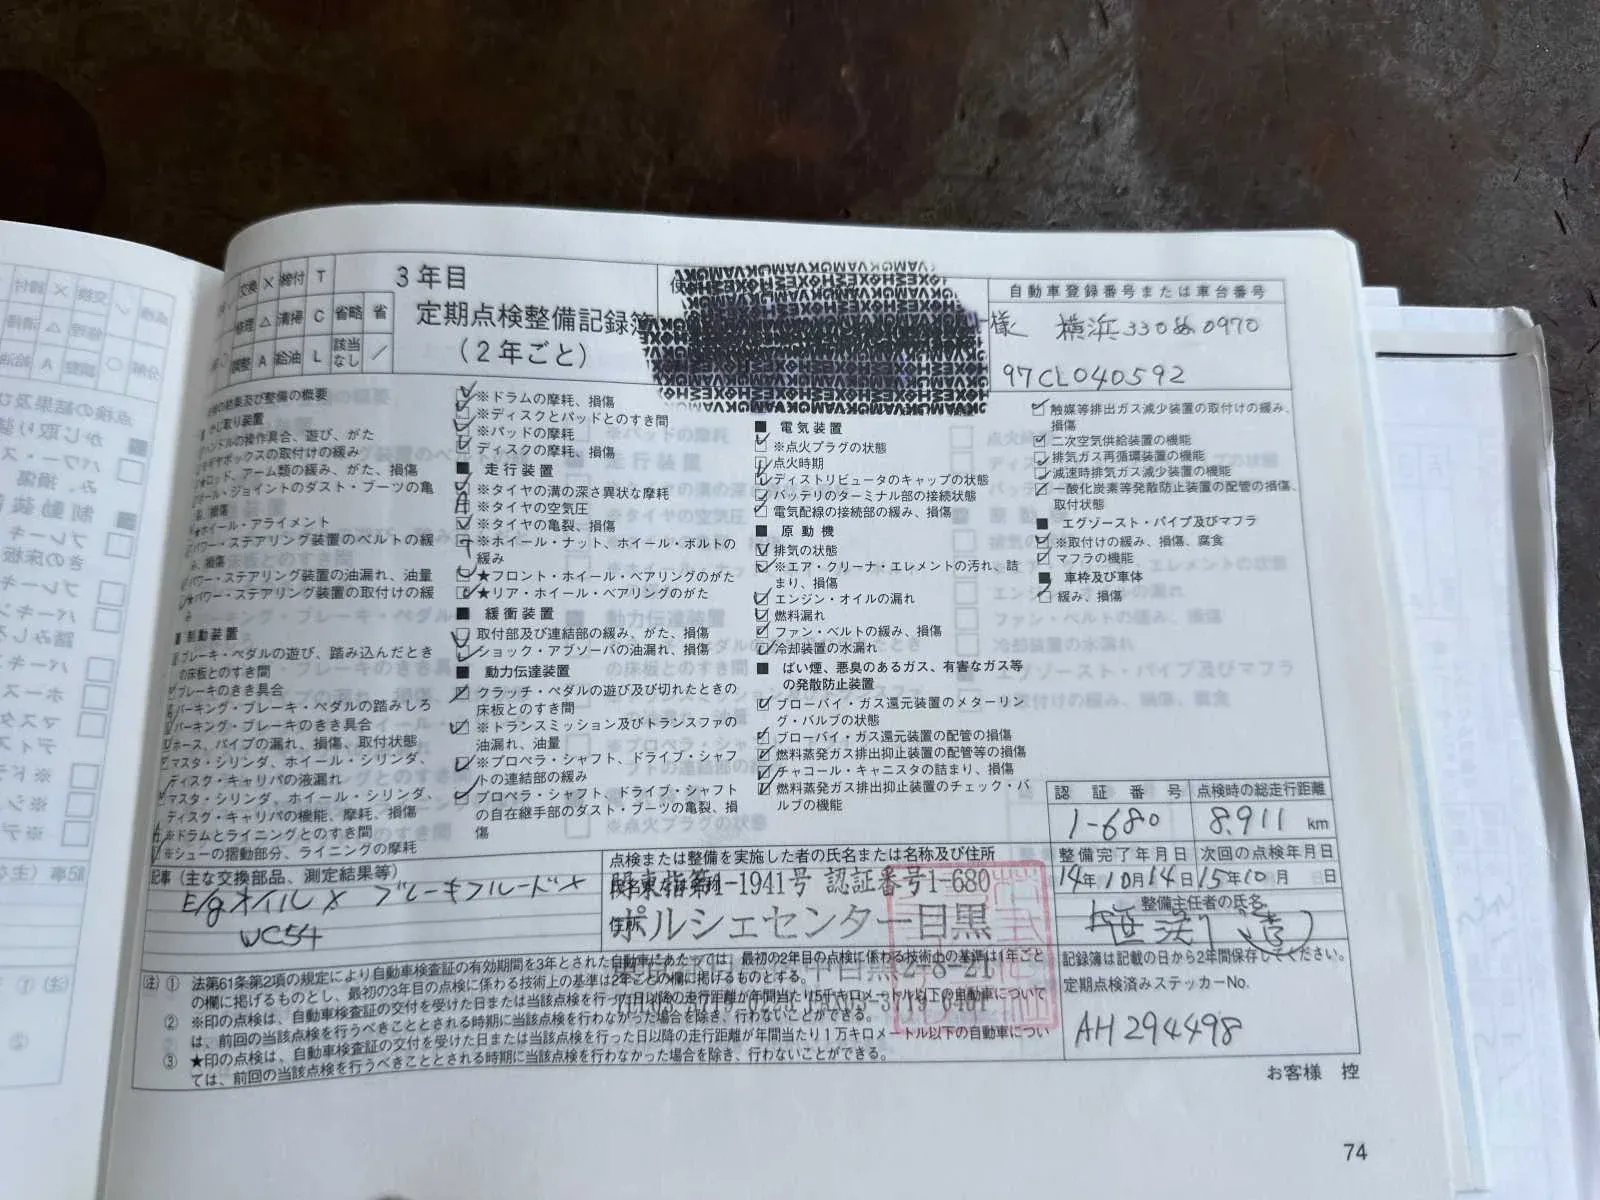 交換 × 締付 T
修理 △ 清掃 C 省略 省
調整 A 給油 L 該当なし ／
3年目
定期点検整備記録簿
（2年ごと）
使
様
自動車登録番号または車台番号
横浜330ぬ0970
97CL040592
の結果及び整備の概要
かじ取り装置
ハンドルの操作具合、遊び、がた
ギヤボックスの取付けの緩み
ロッド、アーム類の緩み、がた、損傷
ボール・ジョイントのダスト・ブーツの亀
裂、損傷
ホイール・アライメント
パワー・ステアリング装置のベルトの緩
み、損傷
パワー・ステアリング装置の油漏れ、油量
パワー・ステアリング装置の取付けの緩
み
■ 制動装置
ブレーキ・ペダルの遊び、踏み込んだとき
の床板とのすき間
ブレーキのきき具合
パーキング・ブレーキ・ペダルの踏みしろ
パーキング・ブレーキのきき具合
ホース、パイプの漏れ、損傷、取付状態
マスタ・シリンダ、ホイール・シリンダ、
ディスク・キャリパの液漏れ
マスタ・シリンダ、ホイール・シリンダ、
ディスク・キャリパの機能、摩耗、損傷
※ドラムとライニングとのすき間
※シューの摺動部分、ライニングの摩耗
※ドラムの摩耗、損傷
※ディスクとパッドとのすき間
※パッドの摩耗
ディスクの摩耗、損傷
■ 走行装置
※タイヤの溝の深さ異状な摩耗
※タイヤの空気圧
※タイヤの亀裂、損傷
※ホイール・ナット、ホイール・ボルトの
緩み
★フロント・ホイール・ベアリングのがた
★リア・ホイール・ベアリングのがた
■ 緩衝装置
取付部及び連結部の緩み、がた、損傷
ショック・アブソーバの油漏れ、損傷
■ 動力伝達装置
クラッチ・ペダルの遊び及び切れたときの
床板とのすき間
※トランスミッション及びトランスファの
油漏れ、油量
※プロペラ・シャフト、ドライブ・シャフ
トの連結部の緩み
プロペラ・シャフト、ドライブ・シャフト
の自在継手部のダスト・ブーツの亀裂、損
傷
■ 電気装置
※点火プラグの状態
点火時期
ディストリビュータのキャップの状態
バッテリのターミナル部の接続状態
電気配線の接続部の緩み、損傷
■ 原動機
排気の状態
※エア・クリーナ・エレメントの汚れ、詰
まり、損傷
エンジン・オイルの漏れ
燃料漏れ
ファン・ベルトの緩み、損傷
冷却装置の水漏れ
■ ばい煙、悪臭のあるガス、有害なガス等
の発散防止装置
ブローバイ・ガス還元装置のメターリン
グ・バルブの状態
ブローバイ・ガス還元装置の配管の損傷
燃料蒸発ガス排出抑止装置の配管等の損傷
チャコール・キャニスタの詰まり、損傷
燃料蒸発ガス排出抑止装置のチェック・バ
ルブの機能
触媒等排出ガス減少装置の取付けの緩み、
損傷
二次空気供給装置の機能
排気ガス再循環装置の機能
減速時排気ガス減少装置の機能
一酸化炭素等発散防止装置の配管の損傷、
取付状態
■ エグゾースト・パイプ及びマフラ
※取付けの緩み、損傷、腐食
マフラの機能
■ 車枠及び車体
緩み、損傷
認証番号 点検時の総走行距離
1-680 8,911 km
整備完了年月日 次回の点検年月日
14年10月14日 15年10月 日
整備主任者の氏名
記録簿は記載の日から2年間保存してください。
定期点検済みステッカーNo.
AH294498
記事（主な交換部品、測定結果等）
E/gオイル× ブレーキフルード×
WC54
点検または整備を実施した者の氏名または名称及び住所
関東指第1-1941号 認証番号1-680
ポルシェセンター目黒
住所
中目黒2-8-21
（注）① 法第61条第2項の規定により自動車検査証の有効期間を3年とされた自動車にあたっては、最初の2年目の点検に係わる技術上の基準は1年ごと
の欄に掲げるものとし、最初の3年目の点検に係わる技術上の基準は2年ごとの欄に掲げるものとする。
② ※印の点検は、自動車検査証の交付を受けた日または当該点検を行った日以降の走行距離が年間当たり5千キロメートル以下の自動車について
は、前回の当該点検を行うべきこととされる時期に当該点検を行わなかった場合を除き、行わないことができる。
③ ★印の点検は、自動車検査証の交付を受けた日または当該点検を行った日以降の走行距離が年間当たり1万キロメートル以下の自動車につい
ては、前回の当該点検を行うべきこととされる時期に当該点検を行わなかった場合を除き、行わないことができる。
お客様 控
74